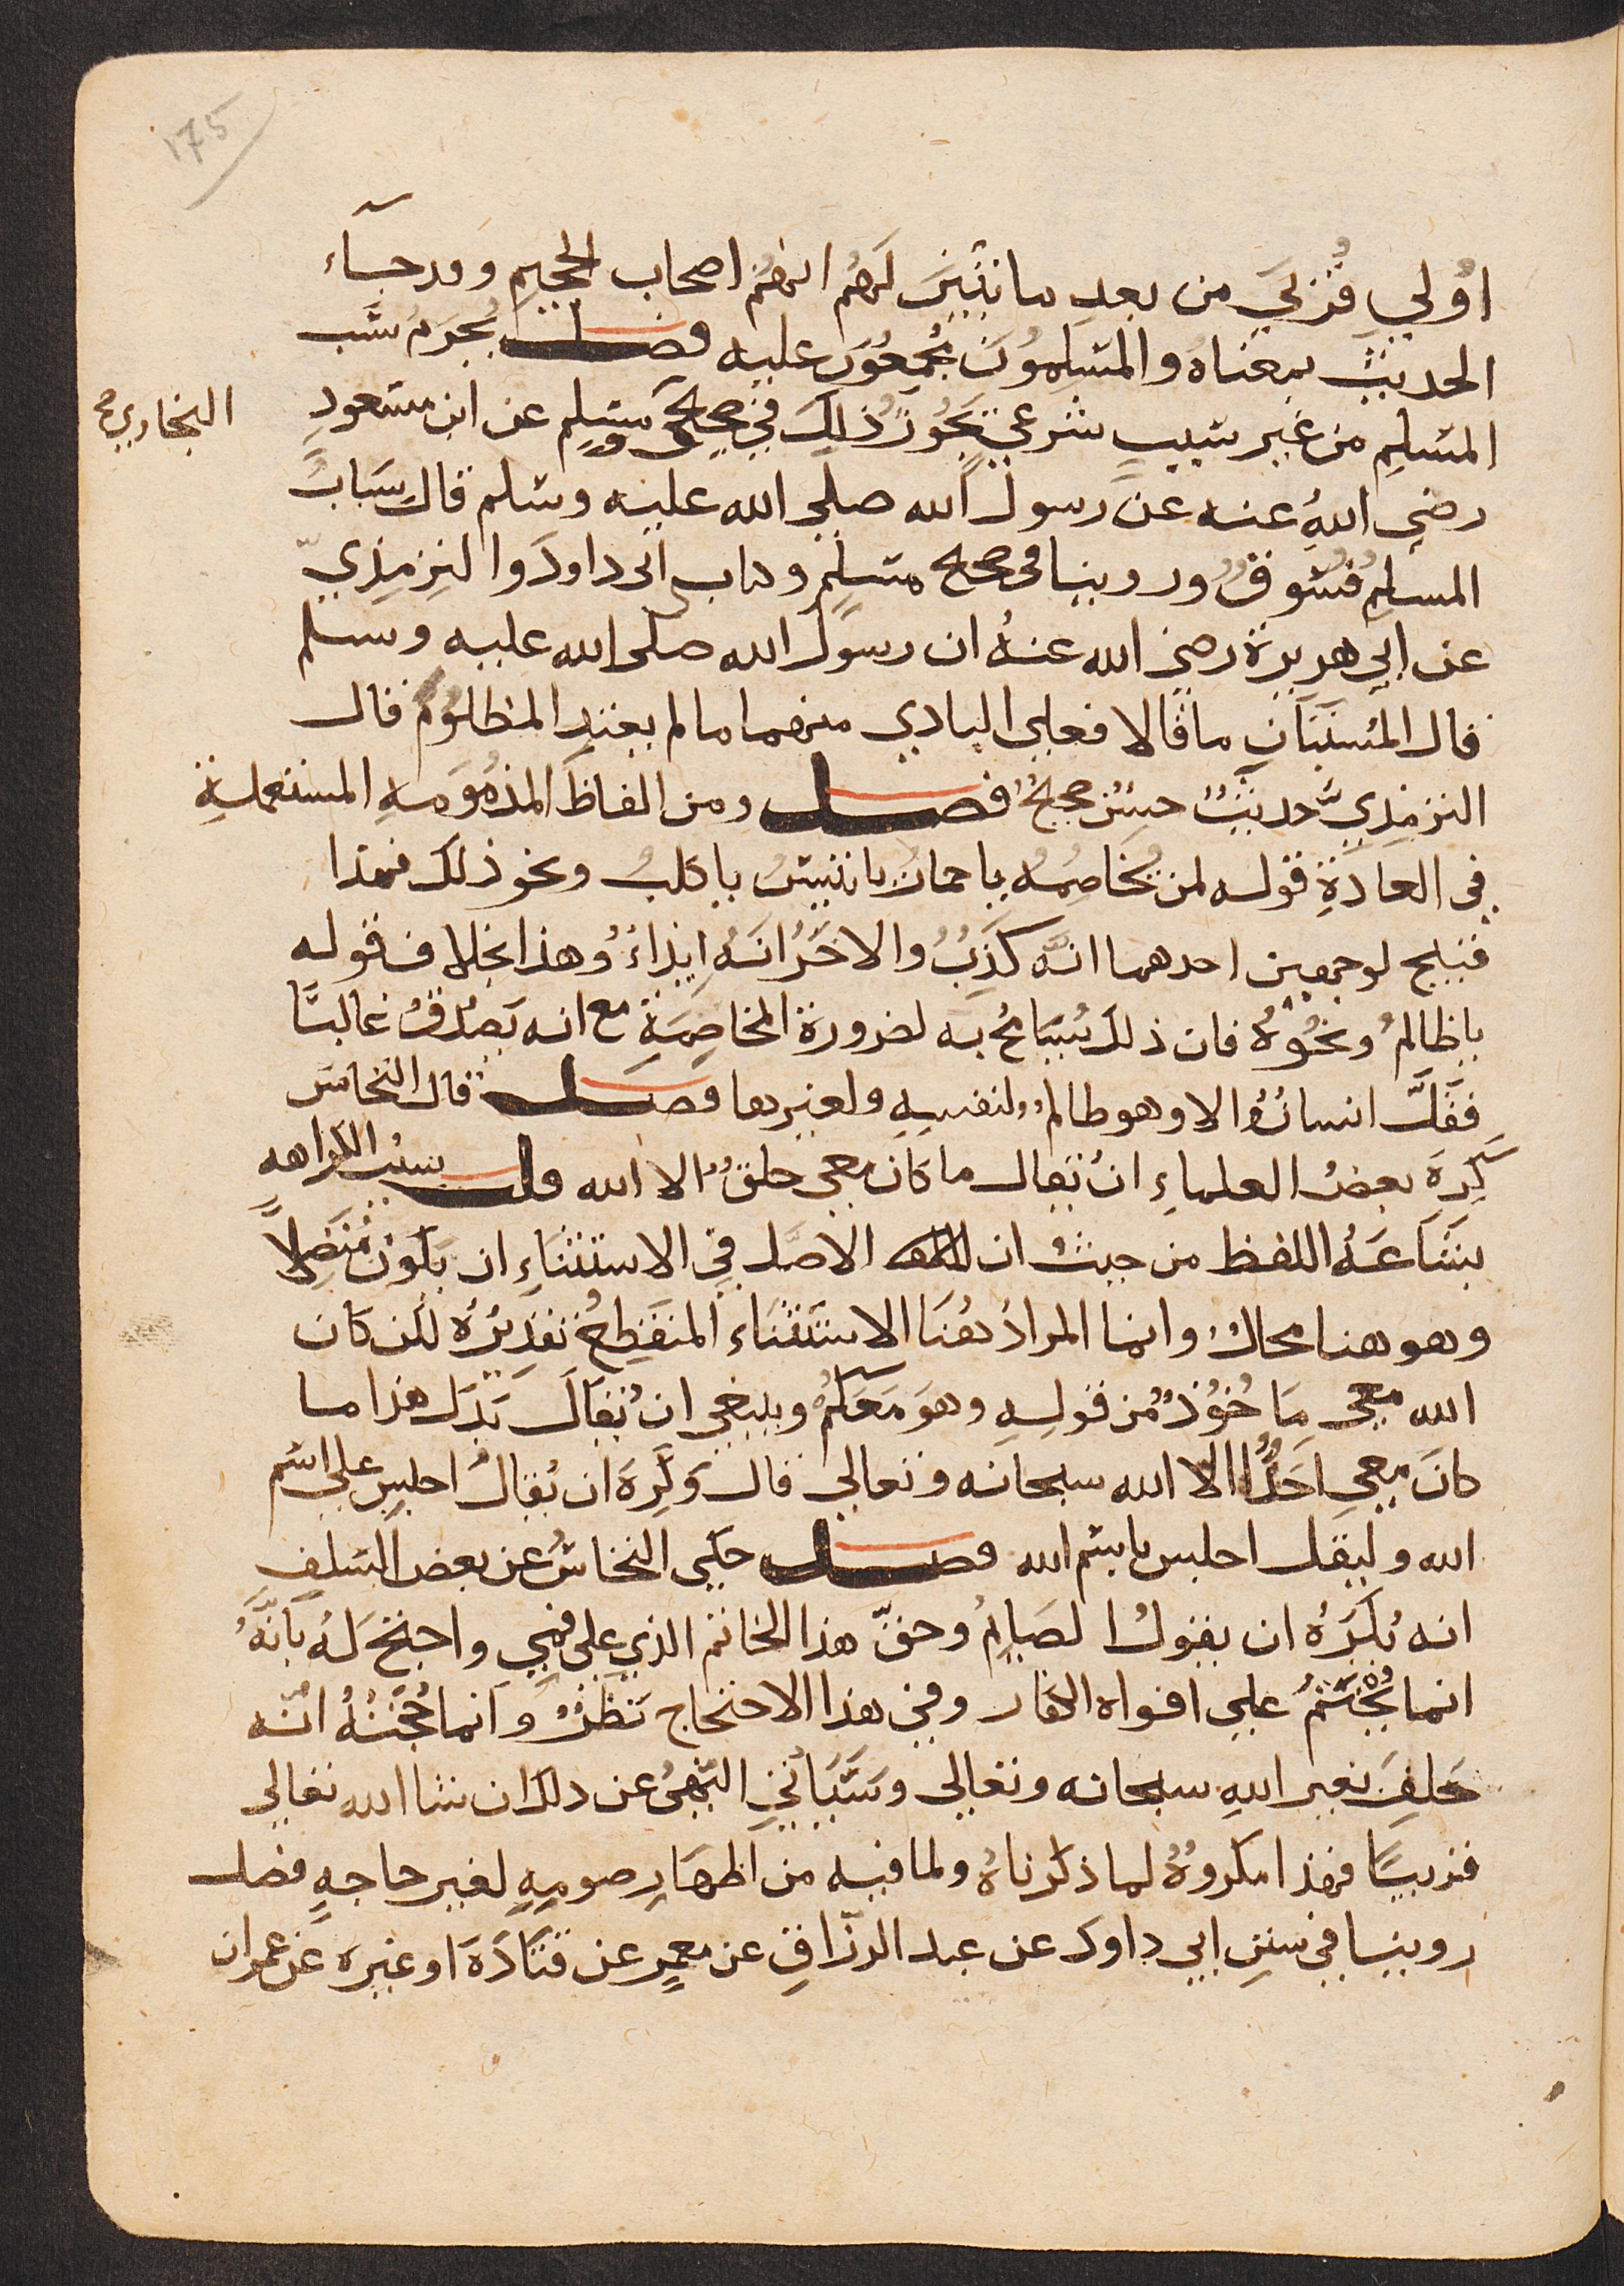 175
اولي قربى من بعد ما تبين لهم انهم اصحاب الجحيم وقد جاء
الحديث بمعناه والمسلمون مجمعون عليه فصل يحرم سب
المسلم من غير سبب شرعي يجوز ذلك في صحيحي ومسلم عن ابن مسعود
البخاري صح
رضي الله عنه عن رسول الله صلى الله عليه وسلم قال سباب
المسلم فسوق وروينا في صحيح مسلم وكتاب ابى داود والترمذي
عن ابي هريرة رضي الله عنه ان رسول الله صلى الله عليه وسلم
قال المستبان ما قالا فعلى البادي منهما ما لم يعتد المظلوم قال
الترمذي حديث حسن صحيح فصل ومن الفاظ المذمومه المستعملة
في العادة قوله لمن يخاصمه يا حمار يا تيس يا كلب ونحو ذلك فهذا
قبيح لوجهين احدهما انه كذب والاخر انه ايذاء وهذا بخلاف قوله
يا ظالم ونحوه فان ذلك يتسامح به لضرورة المخاصمة مع انه يصدق غالبا
فقل انسان الا وهو ظالم ولنفسه ولغيرها فصل قال النحاس
كره بعض العلماء ان يقال ما كان معي خلق الا الله قلت سبب الكراهه
بشاعة اللفظ من حيث ان الاصل في الاستثناء ان يكون متصلا
وهو هنا محال وانما المراد هنا الاستثناء المنقطع تقديره لكن كان
الله معي ماخوذ من قوله وهو معكم وينبغي ان يقال بدل هذا ما
كان معي احد الا الله سبحانه وتعالى قال وكره ان يقال اجلس على اسم
الله وليقل اجلس باسم الله فصل حكى النحاس عن بعض السلف
انه يكره ان يقول الصايم وحق هذا الخاتم الذي على فمي واحتج له بانه
انما يختم على افواه الكفار وفي هذا الاحتجاج نظر وانما حجته انه
حلف بغير الله سبحانه وتعالى وسياتي النهي عن ذلك ان شا الله تعالى
قريبا فهذا مكروه لما ذكرناه ولما فيه من اظهار صومه لغير حاجه فصل
روينا في سنن ابي داود عن عبد الرزاق عن معمر عن قتادة او غيره عن عمران